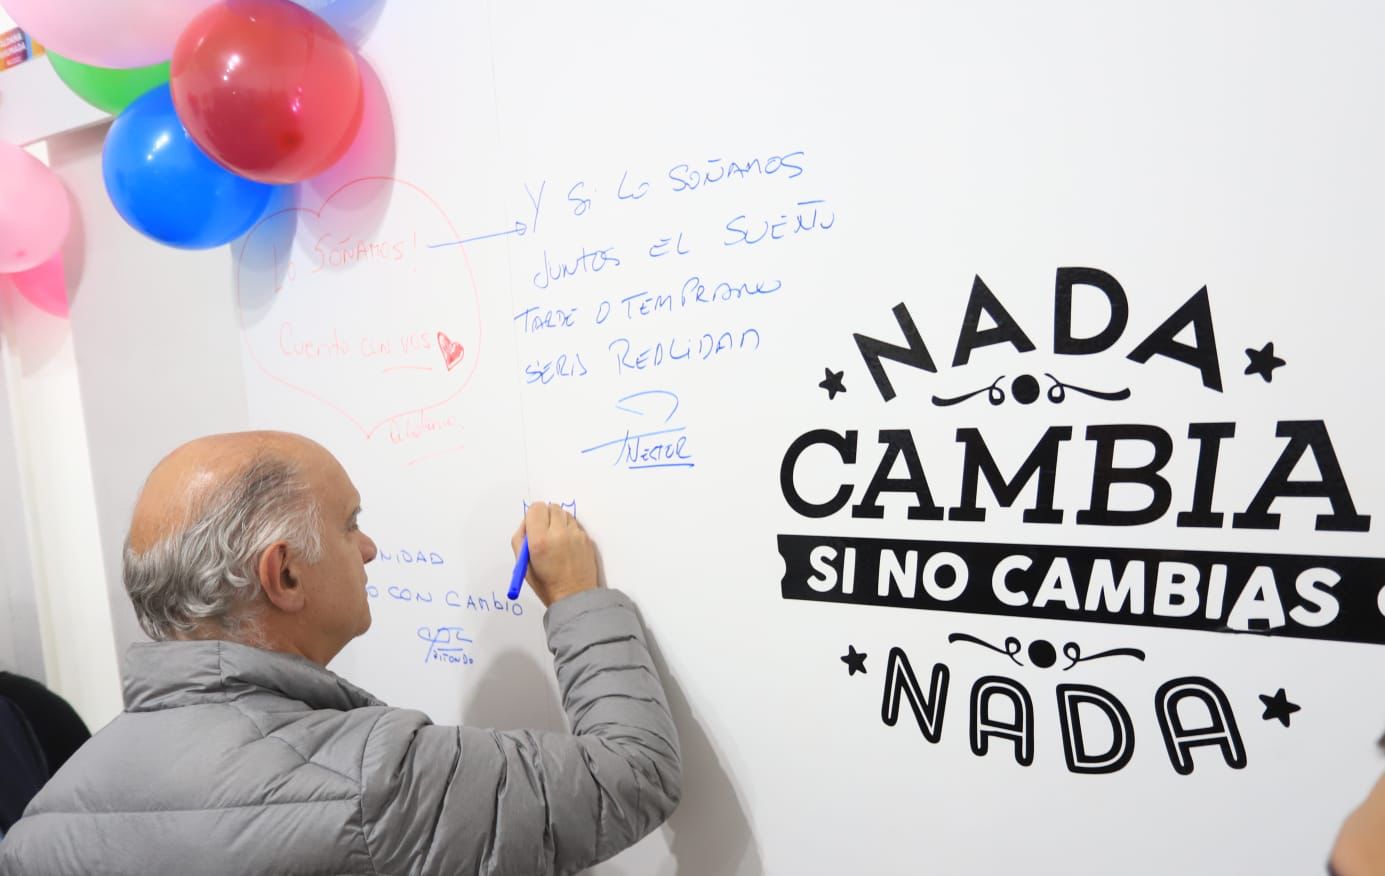 Lo SOÑAMOS!
Cuento con vos
Y Si Lo SOÑAMOS
JUNTOS EL SUEÑO
TARDE O TEMPRANO
SERÁ REALIDAD
NESTOR
NIDAD
O CON CAMBIO
RITONDO
NADA
CAMBIA
SI NO CAMBIAS
NADA